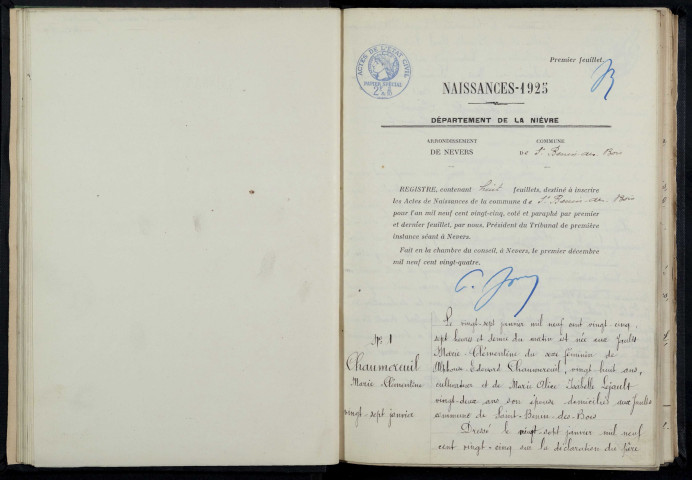 Premier feuillet.
ACTES DE L'ETAT CIVIL
PAPIER SPECIAL
NAISSANCES-1925
DÉPARTEMENT DE LA NIÈVRE
ARRONDISSEMENT
DE NEVERS
COMMUNE
DE St Benin-des-Bois
REGISTRE, contenant huit feuillets, destiné à inscrire
les Actes de Naissances de la commune de St Benin-des-Bois
pour l'an mil neuf cent vingt-cinq, coté et paraphé par premier
et dernier feuillet, par nous, Président du Tribunal de première
instance séant à Nevers.
Fait en la chambre du conseil, à Nevers, le premier décembre
mil neuf cent vingt-quatre.
No 1
Chaumereuil
Marie Clémentine
vingt-sept janvier
Le vingt-sept janvier mil neuf cent vingt-cinq
sept heures et demie du matin est née aux Joults
Marie Clémentine du sexe féminin de
Alphonse Edouard Chaumereuil, vingt huit ans,
cultivateur et de Marie Alice Isabelle Lejault
vingt-deux ans son épouse domiciliés aux Joults
commune de Saint-Benin-des-Bois
Dressé le vingt-sept janvier mil neuf
cent vingt-cinq sur la déclaration du père